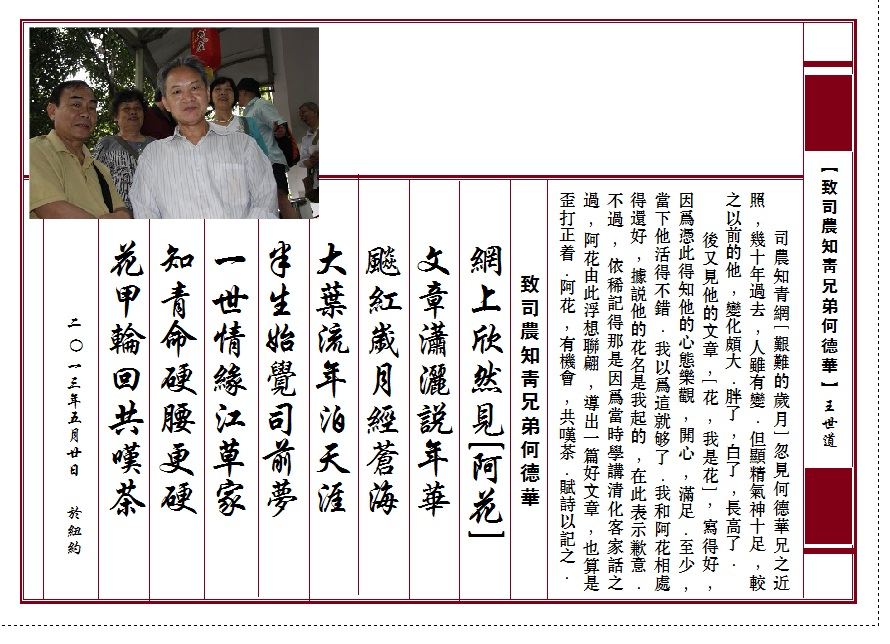 【致司農知青兄弟何德華】 王世道
司農知青網[艱難的歲月]忽見何德華兄之近
照,幾十年過去,人雖有變.但顯精氣神十足,較
之以前的他,變化頗大.胖了,白了,長高了.
後又見他的文章,[花,我是花],寫得好,
因爲憑此得知他的心態樂觀,開心,滿足.至少,
當下他活得不錯.我以爲這就够了.我和阿花相處
得還好,據説他的花名是我起的,在此表示歉意.
不過,依稀記得那是因爲當時學講清化客家話之
過,阿花由此浮想聯翩,導出一篇好文章,也算是
歪打正着.阿花,有機會,共嘆茶.賦詩以記之.
致司農知青兄弟何德華
網上欣然見[阿花]
文章瀟灑説年華
飈紅歲月經蒼海
大葉流年泊天涯
半生始覺司前夢
一世情緣江草家
知青命硬腰更硬
花甲輪回共嘆茶
二〇一三年五月廿日 於紐約